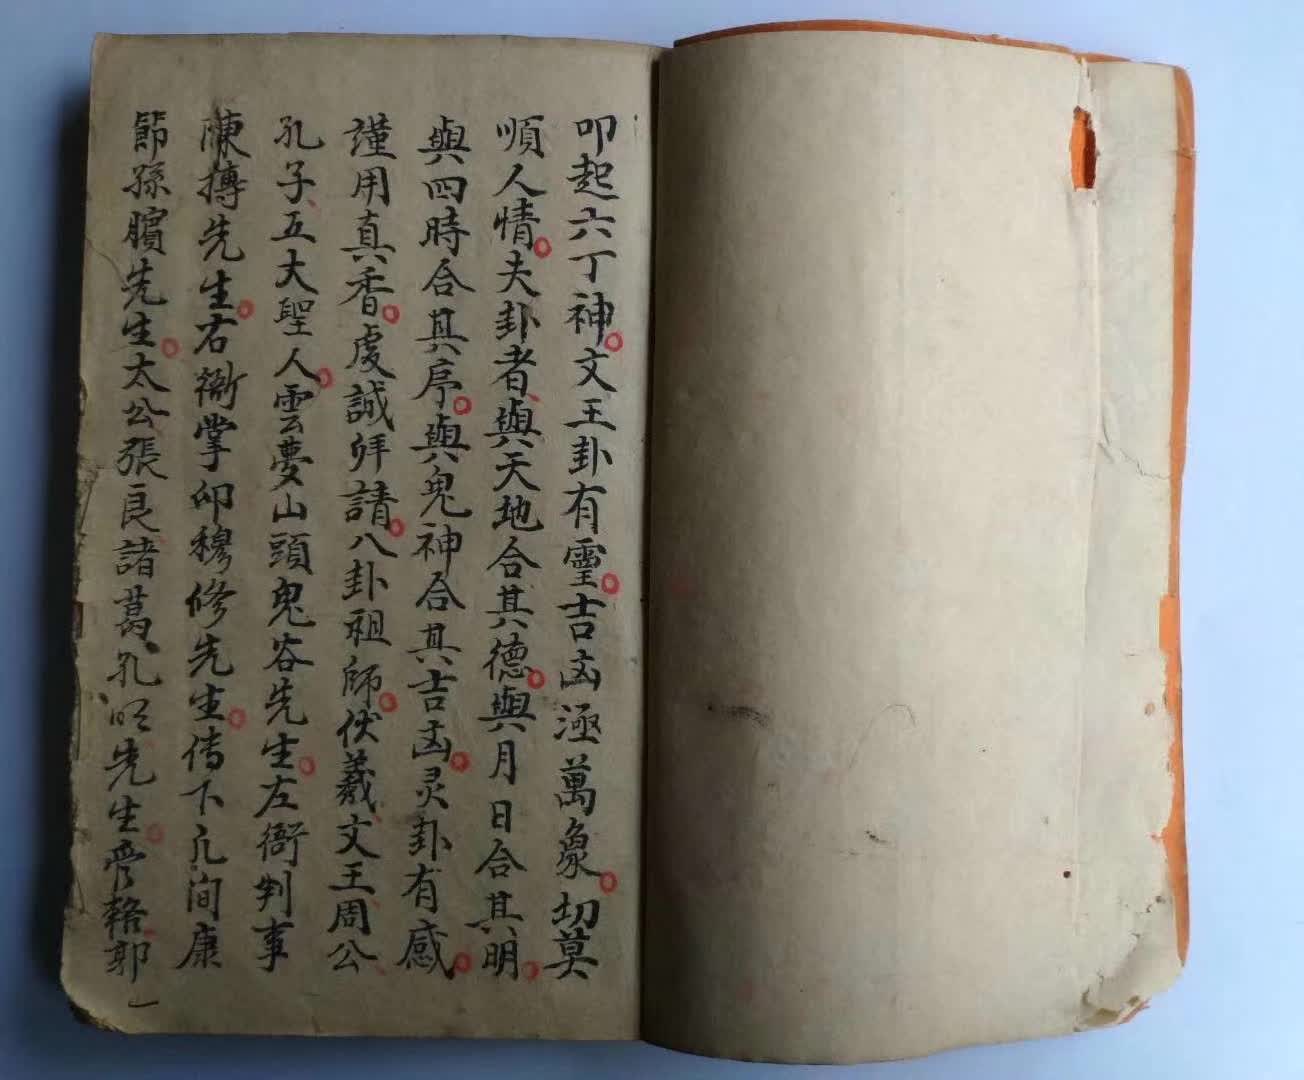 叩起六丁神。文王卦有霊。吉凶極萬象。切莫
順人情。夫卦者、與天地合其德。與月日合其明。
與四時合其序。與鬼神合其吉凶。灵卦有感。
謹用真香。虔誠拜請。八卦祖師。伏羲、文王、周公、
孔子、五大聖人。雲夢山頭鬼谷先生。左衙判事
陳摶先生。右衙掌印穆修先生。传下九间康
節孫臏先生。太公、張良、諸葛孔明先生。管輅、郭